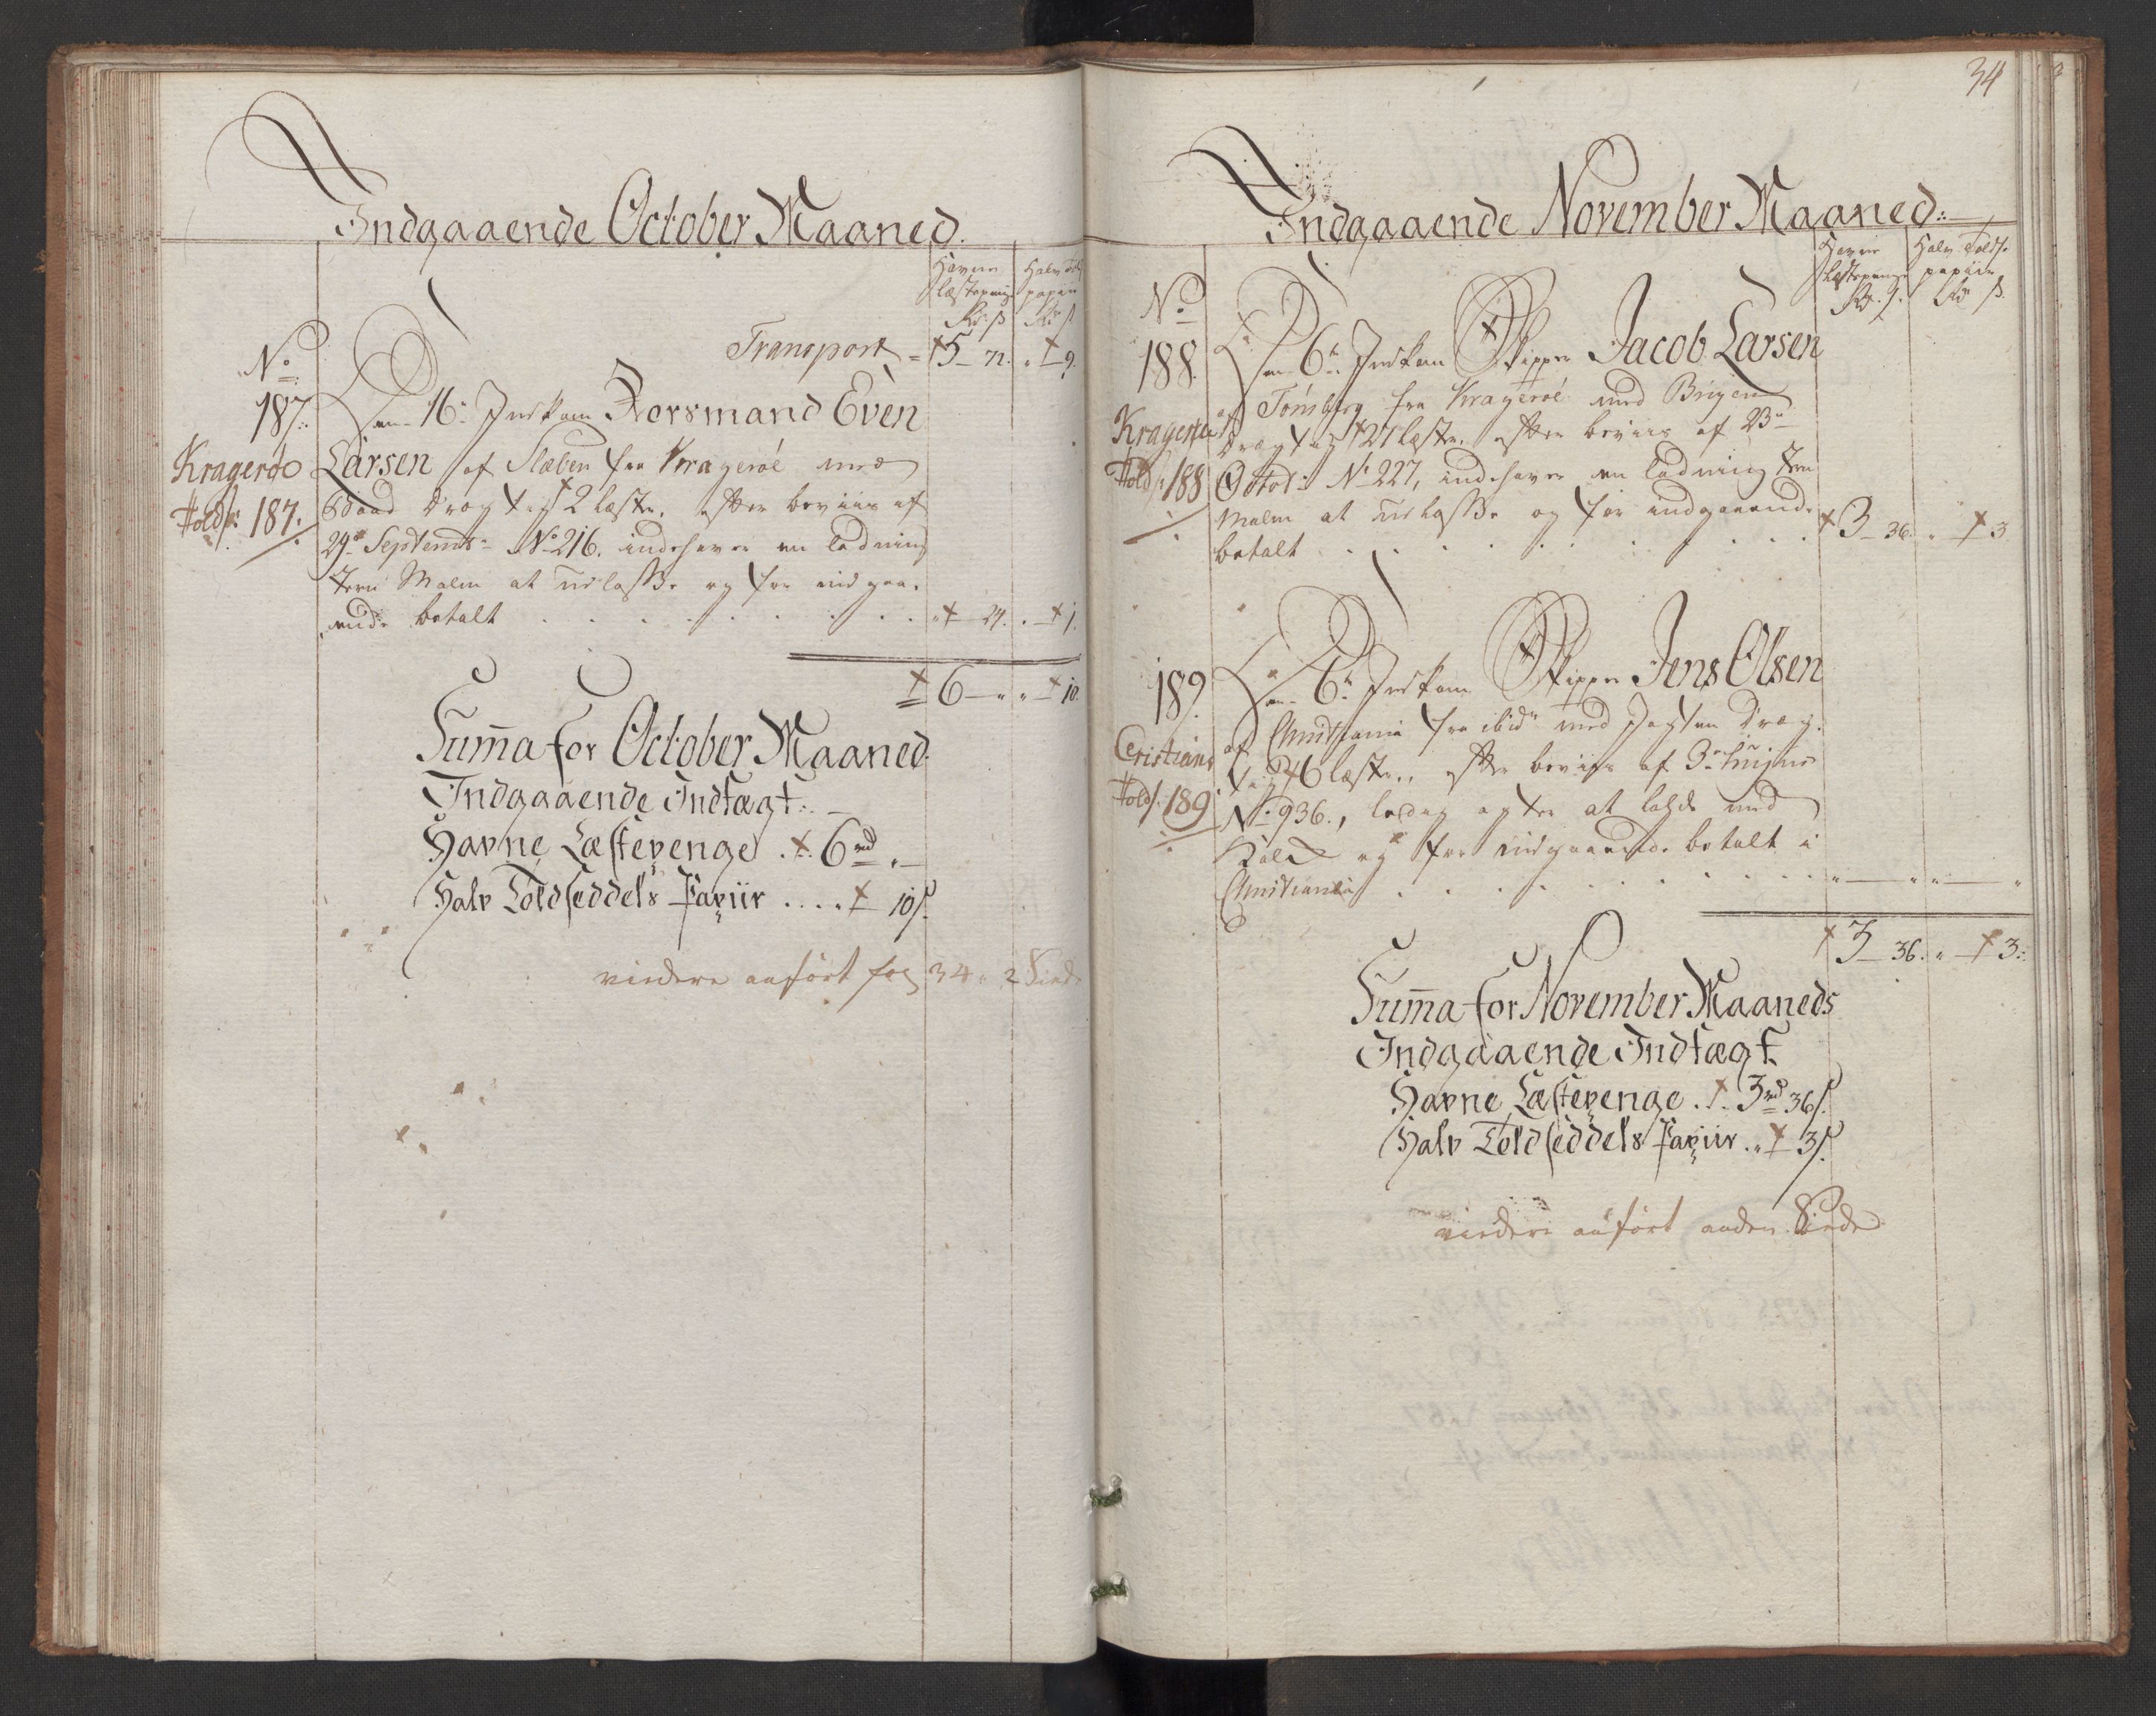 Indgaaende October Maaned.
Havne Læstepenge Rd. ß
Halv Toldß. papiir Rd. ß
Transport = 5 - 72. " - 9.
No
187.
Kragerøe
Toldß: 187.
Den 16de Indkom Rorsmand Even
Larsen af Slæben fra Kragerøe med
Baad Drægt af 2 læster, efter beviis af
29de Septembr No 216. indehaver en ladning
Jern Malm at udlosse og for indgaa-
ende betalt . . . . . . . . . " - 24. " - 1.
6 - " " - 10.
Sum̄a for October Maaned.
Indgaaende Indtægt:
Havne Læstepenge . 6 rd " -
Halv Toldseddels Papiir .... 10 ß.
viidere anført fol 34 " 2 Siide
34
Indgaaende November Maaned:
Havne læstepenge Rd. ß.
Halv Toldß. papiir Rd ß.
No
188.
Kragerøe
Toldß: 188
Den 6te Indkom Skipper Jacob Larsen
af Tønsberg fra Kragerøe med Brigen
Drægtig 27 læster, efter beviis af 23de
Octobr: No 227, indehaver en ladning Jern
Malm at udlosse og for indgaaende
betalt . . . . . . . . . 3 - 36. " - 3
189.
Cristiania
Toldß: 189
Den 6te Indkom Skipper Jens Olsen
af Christiania fra ibid: med Jagten Dræg-
tig 46 læster, efter beviis af 3de hujus
No 936., ledig agter at lade med
og for indgaaende betalt i
Christiania . . . . . . . . . " - " " - "
3 - 36. " - 3.
Sum̄a for November Maaneds
Indgaaende Indtægt
Havne Læstepenge . 3 rd 36 ß.
Halv Toldseddels Papiir . " 3 ß.
viidere anført anden Siide